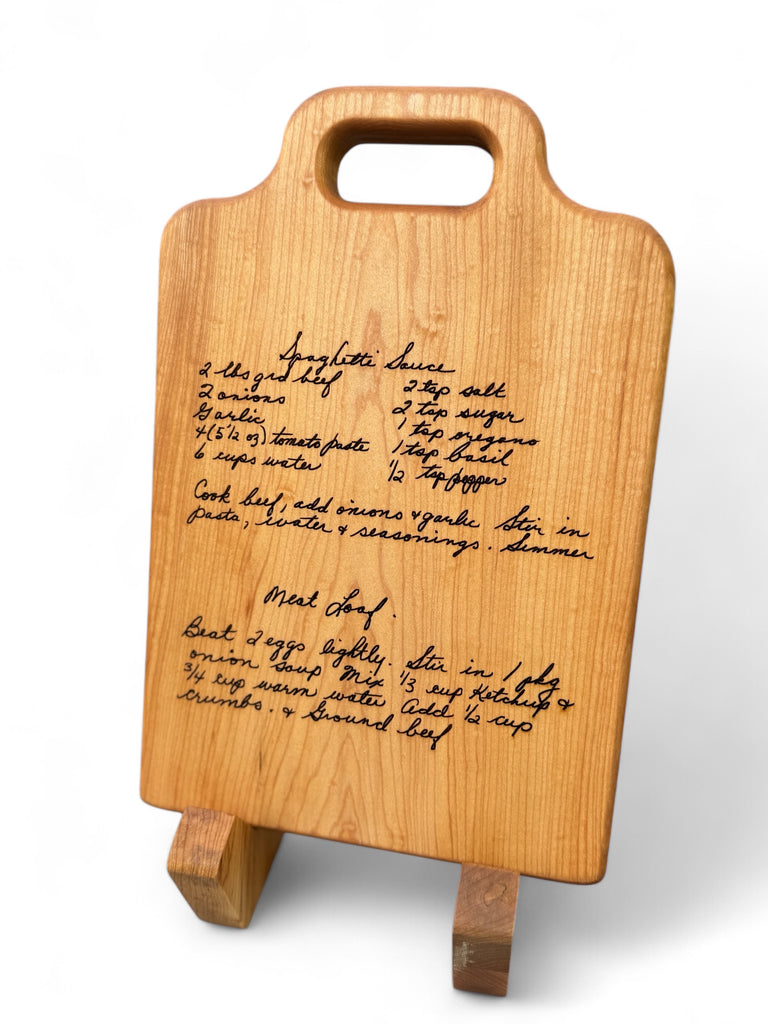 Spaghetti Sauce
2 lbs grd beef
2 onions
Garlic
4 (5 1/2 oz) tomato paste
6 cups water
2 tsp salt
2 tsp sugar
1 tsp oregano
1 tsp basil
1/2 tsp pepper
Cook beef, add onions & garlic Stir in
pasta, water & seasonings. Simmer
Meat Loaf.
Beat 2 eggs lightly. Stir in 1 pkg
onion soup Mix 1/3 cup Ketchup &
3/4 cup warm water Add 1/2 cup
crumbs. & Ground beef